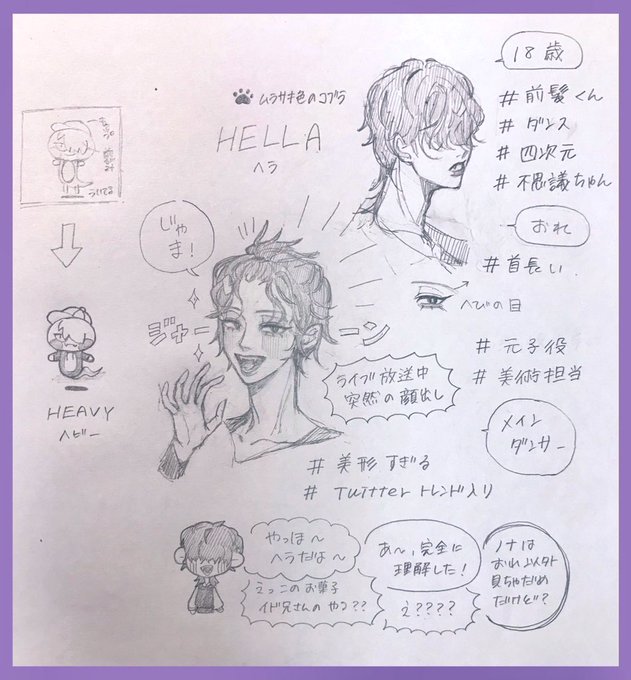 18歳
ムラサキ色のコブラ
HELLA
ヘラ
# 前髪くん
# ダンス
# 四次元
# 不思議ちゃん
おれ
# 首長い
へびの目
じゃま!
ジャーーン
# 元子役
# 美術担当
ライブ放送中
突然の顔出し
メイン
ダンサー
HEAVY
ヘビー
# 美形すぎる
# Twitterトレンド入り
やっほ〜
ヘラだよ〜
えっこのお菓子
イド兄さんのやつ??
あ〜、完全に
理解した!
え????
ノナは
おれ以外
見ちゃだめ
だけど?